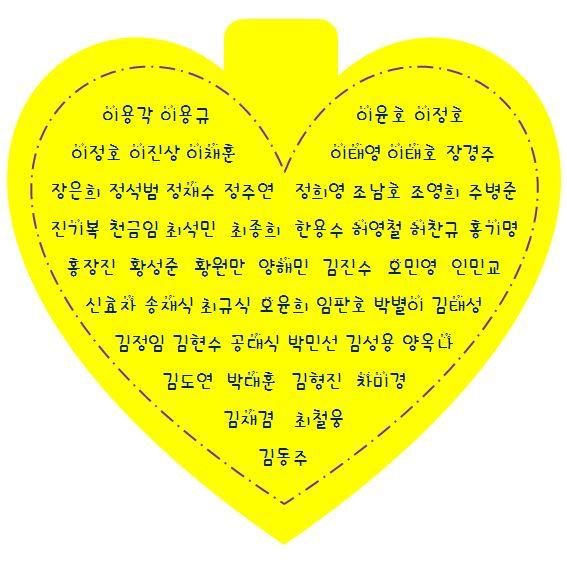 이용각 이용규 이윤호 이정호
이정호 이진상 이채훈 이태영 이태호 장경주
장은희 정석범 정재수 정주연 정희영 조남호 조영희 주병준
진기복 천금임 최석민 최종희 한용수 허영철 허찬규 홍기명
홍장진 황성준 황원만 양해민 김진수 오민영 인민교
신효차 송재식 최규식 오윤희 임판호 박별이 김태성
김정임 김현수 공대식 박민선 김성용 양옥나
김도연 박대훈 김형진 차미경
김재겸 최철웅
김동주